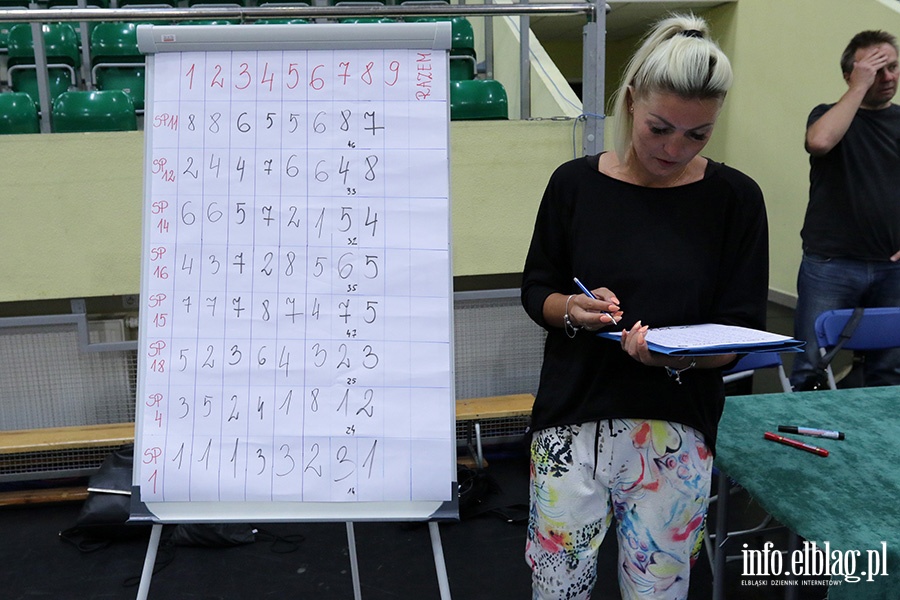 1 2 3 4 5 6 7 8 9 RAZEM
SP11 8 8 6 5 5 6 8 7
46
SP 12 2 4 4 7 6 6 4 8
33
SP 14 6 6 5 7 2 1 5 4
32
SP 16 4 3 7 2 8 5 6 5
35
SP 15 7 7 7 8 7 4 7 5
47
SP 18 5 2 3 6 4 3 2 3
25
SP 4 3 5 2 4 1 8 1 2
24
SP 1 1 1 1 3 3 2 3 1
14
info.elblag.pl
ELBLĄSKI DZIENNIK INTERNETOWY